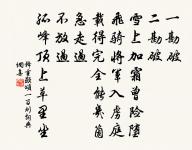 一勘破
二勘破
雪上加霜曾險墮
飛騎將軍入虜庭
得完全能幾箇
急走過
不放過
孤峰頂上草里坐
釋重顯頌一百則